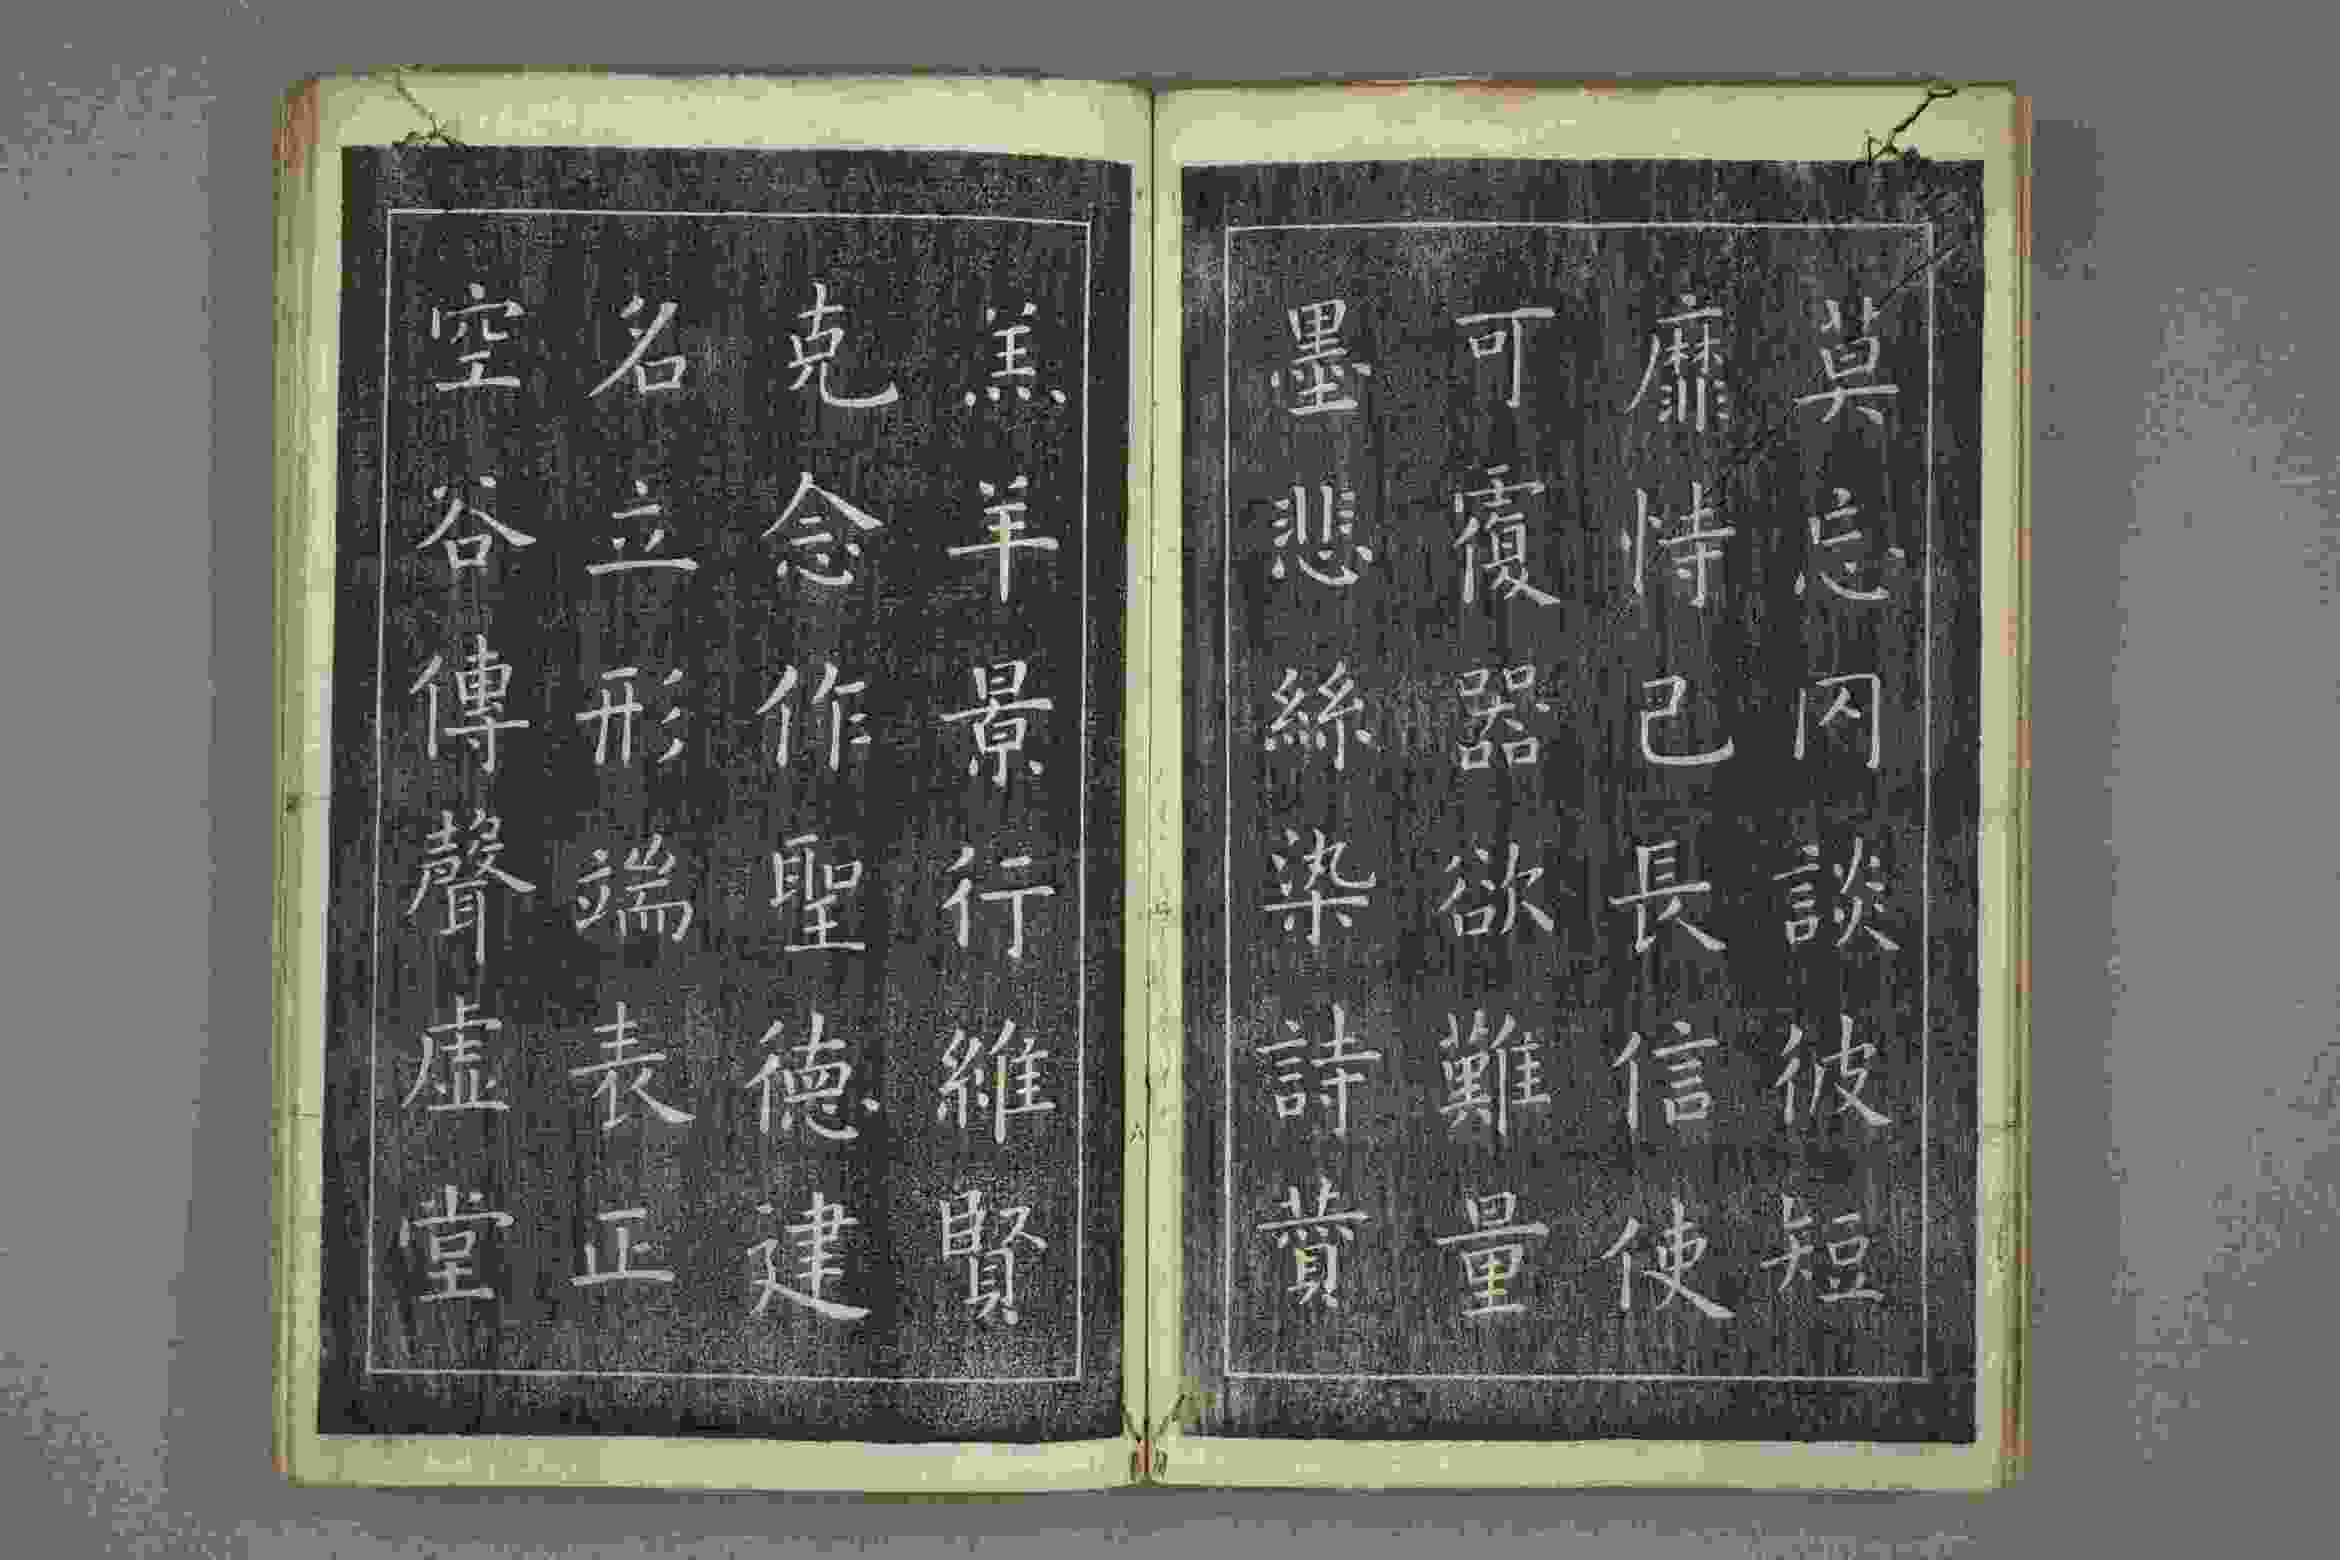 莫忘罔談彼短
靡恃己長信使
可覆器欲難量
墨悲絲染詩讚
羔羊景行維賢
克念作聖德建
名立形端表正
空谷傳聲虛堂
六